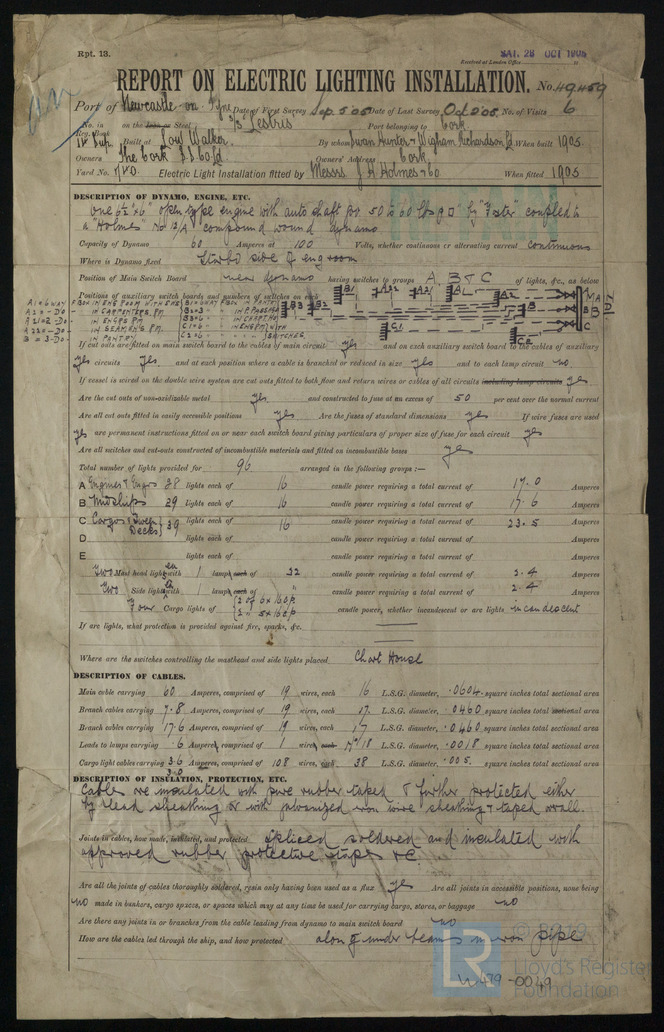 Rpt. 13.
SAT. 28 OCT 1905
Received at London Office
REPORT ON ELECTRIC LIGHTING INSTALLATION. No. 49459
Port of Newcastle on Tyne Date of First Survey Sep. 5 '05 Date of Last Survey Oct 2 '05 No. of Visits 6
No. in Reg. Book on the Iron or Steel S/S Lestris Port belonging to Cork
Built at Low Walker By whom Swan Hunter & Wigham Richardson Ld When built 1905
Owners The Cork S S Co Ld. Owners' Address Cork
Yard No. Electric Light Installation fitted by Messrs J H Holmes & Co When fitted 1905
DESCRIPTION OF DYNAMO, ENGINE, ETC.
One 6½" x 6" open type engine with auto shaft for 50 to 60 lbs p □ by "Foster" coupled to
a "Holmes" No 12/A compound wound dynamo
Capacity of Dynamo 60 Amperes at 100 Volts, whether continuous or alternating current continuous
Where is Dynamo fixed Starbd side of eng room
Position of Main Switch Board near dynamo having switches to groups A, B & C of lights, &c., as below
Positions of auxiliary switch boards and numbers of switches on each
If cut outs are fitted on main switch board to the cables of main circuit yes and on each auxiliary switch board to the cables of auxiliary
circuits yes and at each position where a cable is branched or reduced in size yes and to each lamp circuit no
If vessel is wired on the double wire system are cut outs fitted to both flow and return wires or cables of all circuits including lamp circuits yes
Are the cut outs of non-oxidizable metal yes and constructed to fuse at an excess of 50 per cent over the normal current
Are all cut outs fitted in easily accessible positions yes Are the fuses of standard dimensions yes If wire fuses are used
yes are permanent instructions fitted on or near each switch board giving particulars of proper size of fuse for each circuit yes
Are all switches and cut-outs constructed of incombustible materials and fitted on incombustible bases yes
Total number of lights provided for 96 arranged in the following groups :—
A Engines & Engrs 28 lights each of 16 candle power requiring a total current of 17.0 Amperes
B Midships 29 lights each of 16 candle power requiring a total current of 17.6 Amperes
C Cargo & Tween Decks 39 lights each of 16 candle power requiring a total current of 23.5 Amperes
D lights each of candle power requiring a total current of Amperes
E lights each of candle power requiring a total current of Amperes
Two Mast head lights with 1 lamp each of 32 candle power requiring a total current of 2.4 Amperes
Two Side lights with 1 lamp each of candle power requiring a total current of 2.4 Amperes
Four Cargo lights of 2 of 6 x 16 cp 2 " 5 x 16 cp candle power, whether incandescent or arc lights incandescent
If arc lights, what protection is provided against fire, sparks, &c.
Where are the switches controlling the masthead and side lights placed Chart House
DESCRIPTION OF CABLES.
Main cable carrying 60 Amperes, comprised of 19 wires, each 16 L.S.G. diameter, .0604 square inches total sectional area
Branch cables carrying 7.8 Amperes, comprised of 19 wires, each 17 L.S.G. diameter, .0460 square inches total sectional area
Branch cables carrying 17.6 Amperes, comprised of 19 wires, each 17 L.S.G. diameter, .0460 square inches total sectional area
Leads to lamps carrying .6 Amperes, comprised of 1 wires, each No 18 L.S.G. diameter, .0018 square inches total sectional area
Cargo light cables carrying 3.6 3.0 Amperes, comprised of 108 wires, each 38 L.S.G. diameter, .005 square inches total sectional area
DESCRIPTION OF INSULATION, PROTECTION, ETC.
Cables are insulated with pure rubber taped & further protected either
by lead sheathing or with galvanized iron wire sheathing & taped overall.
Joints in cables, how made, insulated, and protected spliced soldered and insulated with
approved rubber protective tapes &c.
Are all the joints of cables thoroughly soldered, resin only having been used as a flux yes Are all joints in accessible positions, none being
no made in bunkers, cargo spaces, or spaces which may at any time be used for carrying cargo, stores, or baggage no
Are there any joints in or branches from the cable leading from dynamo to main switch board no
How are the cables led through the ship, and how protected along & under beams in iron pipe
W499-0049
LR
© 2019
Lloyd's Register
Foundation